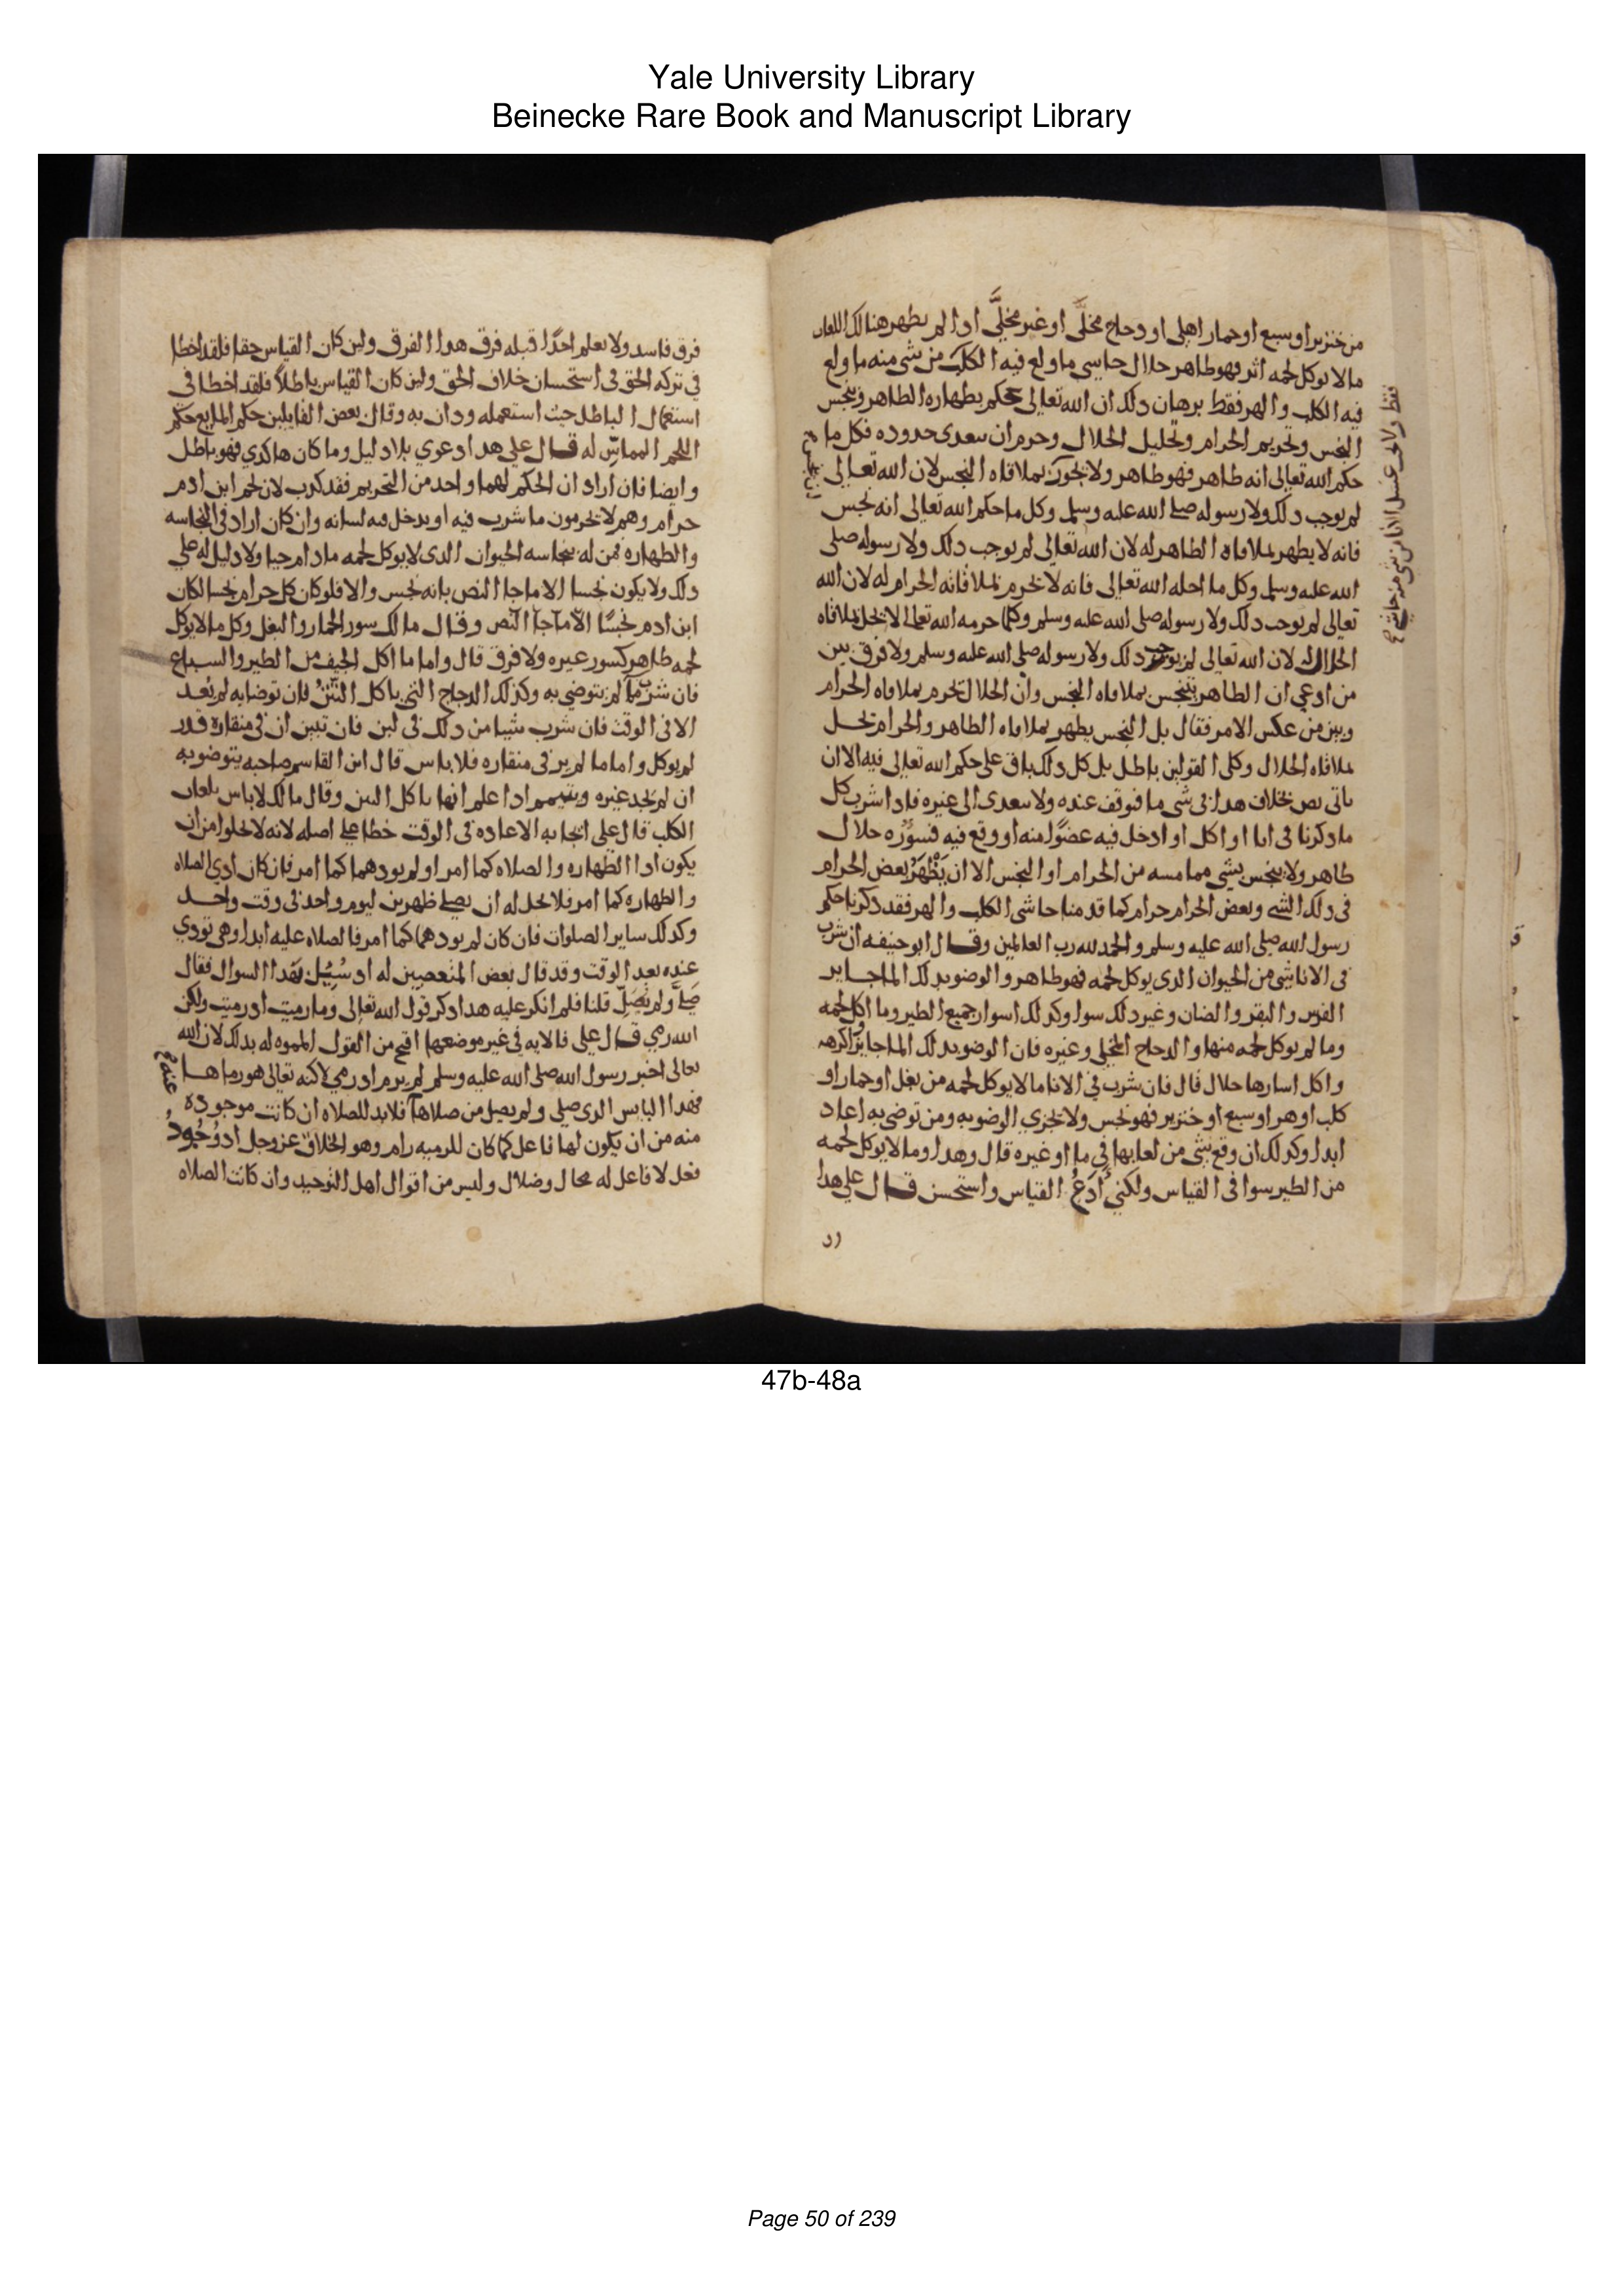 Yale University Library
Beinecke Rare Book and Manuscript Library
من خنزير او سبع او حمار اهلي او دجاج مخلَّى او غير مخلَّى اذا لم يظهر هنالك اللعاب
ما لا يوكل لحمه اثر فهو طاهر حلال حاسى ما ولغ فيه الكلب من شي منه ما ولغ
فيه الكلب والهر فقط برهان ذلك ان الله تعالى حكم بطهاره الطاهر وتنجس
النجس وتحريم الحرام وتحليل الحلال وحرم ان تتعدى حدوده فكل ما
حكم الله تعالى انه طاهر فهو طاهر ولا يجوز بملاقاه النجس لان الله تعالى
لم يوجب ذلك ولا رسوله صلى الله عليه وسلم وكل ما حكم الله تعالى انه نجس
فانه لا يطهر بملاقاه الطاهر له لان الله تعالى لم يوجب ذلك ولا رسوله صلى
الله عليه وسلم وكل ما احله الله تعالى فانه لا يحرم بملاقاته الحرام له لان الله
تعالى لم يوجب ذلك ولا رسوله صلى الله عليه وسلم وكلما حرمه الله تعالى لا يحل بملاقاه
الحلال لان الله تعالى لم يوجب ذلك ولا رسوله صلى الله عليه وسلم ولا فرق بين
من ادعي ان الطاهر يتنجس بملاقاه النجس وان الحلال يحرم بملاقاه الحرام
وبين من عكس الامر فقال بل النجس يطهر بملاقاه الطاهر والحرام يحل
بملاقاه الحلال وكلى القولين باطل بل كل ذلك باق على حكم الله تعالى فيه الا ان
ياتى نص بخلاف هذا في شي ما فيوقف عنده ولا يتعدى الى غيره فاذا شرب كل
ما ذكرنا في انا او اكل او ادخل فيه عضوًا منه او وقع فيه فسوُره حلال
طاهر ولا يتنجس بشي مما مسه من الحرام او النجس الا ان يَظْهَرَ بعض الحرام
في ذلك الشي وبعض الحرام حرام كما قدمنا حاشى الكلب والهر فقد ذكرنا حكم
رسول الله صلى الله عليه وسلم والحمد لله رب العالمين وقال ابو حنيفه ان شرب
في الانا شي من الحيوان الذي يوكل لحمه فهو طاهر والوضو بذلك الما جايز
الفرس والبقر والضان وغير ذلك سوا وكذلك اسوار جميع الطير وما اكل لحمه
وما لم يوكل لحمه منها والدجاج المخلى وغيره فان الوضو بذلك الما جايز واكرهه
واكل اسارها حلال قال فان شرب في الانا ما لا يوكل لحمه من بغل او حمار او
كلب او هر او سبع او خنزير فهو نجس ولا يجزي الوضو به ومن توضي به اعاد
ابدا وكذلك ان وقع شي من لعابها في ما او غيره قال وهذا وما لا يوكل لحمه
من الطير سوا في القياس ولكني أدَعُ القياس واستحسن قال علي هذا
فرق فاسد ولا نعلم احدًا قبله فرق هذا الفرق ولين كان القياس حقا فلقد اخطا
في تركه الحق في استحسان خلاف الحق ولين كان القياس باطلاً فلقد اخطا في
استعمال الباطل حيث استعمله ودان به وقال بعض القايلين حكم المايع حكم
اللحم المماسّ له قال علي هذا دعوي بلا دليل وما كان هاكذي فهو باطل
وايضا فان اراد ان الحكم لهما واحد من التحريم فقد كذب لان لحم ابن ادم
حرام وهم لا يحرمون ما شرب فيه او يدخل فيه لسانه وان كان اراد في النجاسه
والطهاره فمن له بنجاسه الحيوان الذي لا يوكل لحمه مادام حيا ولا دليل له علي
ذلك ولا يكون نجسا الا ما جا النص بانه نجس والا فلو كان كل حرام نجسا لكان
ابن ادم نجسًا الا ما جا النص وقال مالك سور الحمار والبغل وكل ما لا يوكل
لحمه طاهر كسور غيره ولا فرق قال واما ما اكل الجيف من الطير والسباع
فان شرب ما لم يتوضي به وكذلك الدجاج التي ياكل النَّتَنُ فان توضا به لم يُعد
الا في الوقت فان شرب شيا من ذلك في لبن فان تبين ان في منقاره قذر
لم يوكل واما ما لم ير في منقاره فلا باس قال ابن القاسم صاحبه يتوضو به
ان لم يجد غيره ويتيمم اذا علم انها تاكل النتن وقال مالك لا باس بلعاب
الكلب قال علي ايجابه الاعاده في الوقت خطا على اصله لانه لا يخلوا من ان
يكون ادا الطهاره والصلاه كما امر او لم يودهما كما امر فان كان ادي الصلاه
والطهاره كما امر فلا يحل له ان يصلي ظهرين ليوم واحد في وقت واحد
وكذلك ساير الصلوات فان كان لم يودهما كما امر فالصلاه عليه ابدا وهي تودي
عنده بعد الوقت وقد قال بعض المتعصبين له اذ سُيِل بهذا السوال فقال
صَلَّى ولم يُصَلّ قلنا فلم انكر عليه هذا ذكر قول الله تعالى وما رميت اذ رميت ولكن
الله رمي قال علي فالايه في غير موضعها اقبح من القول المموه له بذلك لان الله
تعالى اخبر رسول الله صلى الله عليه وسلم لم يرم اذ رمي لاكنه تعالى هو رماها
فهذا البايس الذي صلي ولم يصل من صلاها فلا بد للصلاه ان كانت موجوده
منه من ان يكون لها فاعل كما كان للرميه رام وهو الخلاق عز وجل اذ وُجُودُ
فعل لا فاعل له محال وضلال وليس من اقوال اهل التوحيد وان كانت الصلاه
47b-48a
Page 50 of 239